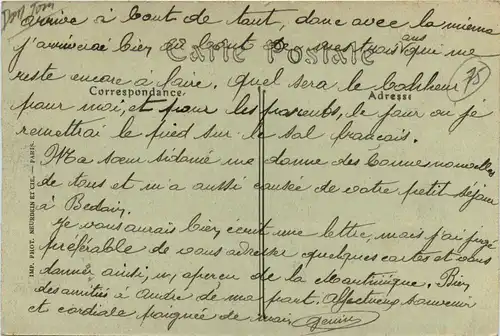 Dom Tom
arrive à bout de tout, donc avec la mienne
j'arriverai bien au bout de mes trois ans qui me
Carte Postale
reste encore à faire. Quel sera le bonheur
75
Correspondance. Adresse:
pour moi, et pour les parents, le jour où je
remettrai le pied sur le sol français.
Ma sœur Sidonie me donne des bonnes nouvelles
de tous et m'a aussi causée de votre petit séjour
à Bedain.
Je vous aurais bien écrit une lettre, mais j'ai jugé
préférable de vous adresser quelques cartes et vous
donner ainsi, un aperçu de la Martinique. Bien
des amitiés à André de ma part. Affectueux souvenir
et cordiale poignée de main
IMP. PHOT. NEURDEIN ET CIE. — PARIS.